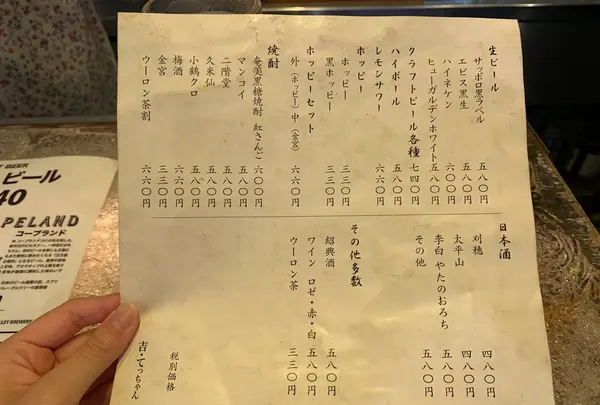 生ビール
サッポロ黒ラベル 五八〇円
エビス黒生 五八〇円
ハイネケン 六〇〇円
ヒューガルデンホワイト 五八〇円
クラフトビール各種 七四〇円
ハイボール 五八〇円
レモンサワー 六六〇円
ホッピー
ホッピー 三三〇円
黒ホッピー 三三〇円
ホッピーセット
外(ホッピー)中(金宮) 六六〇円
焼酎
奄美黒糖焼酎 紅さんご 六〇〇円
マンコイ 五八〇円
二階堂 五八〇円
久米仙 五八〇円
小鶴クロ 五八〇円
梅酒 六六〇円
金宮 三三〇円
ウーロン茶割 六六〇円
日本酒
刈穂 四八〇円
太平山 四八〇円
李白 やたのおろち 五八〇円
その他 五八〇円
その他多数
紹興酒 五八〇円
ワイン ロゼ・赤・白 五八〇円
ウーロン茶 三三〇円
税別価格
吉・てっちゃん
BEER
ビール
40
PELAND
コープランド
LLEY BREWERY